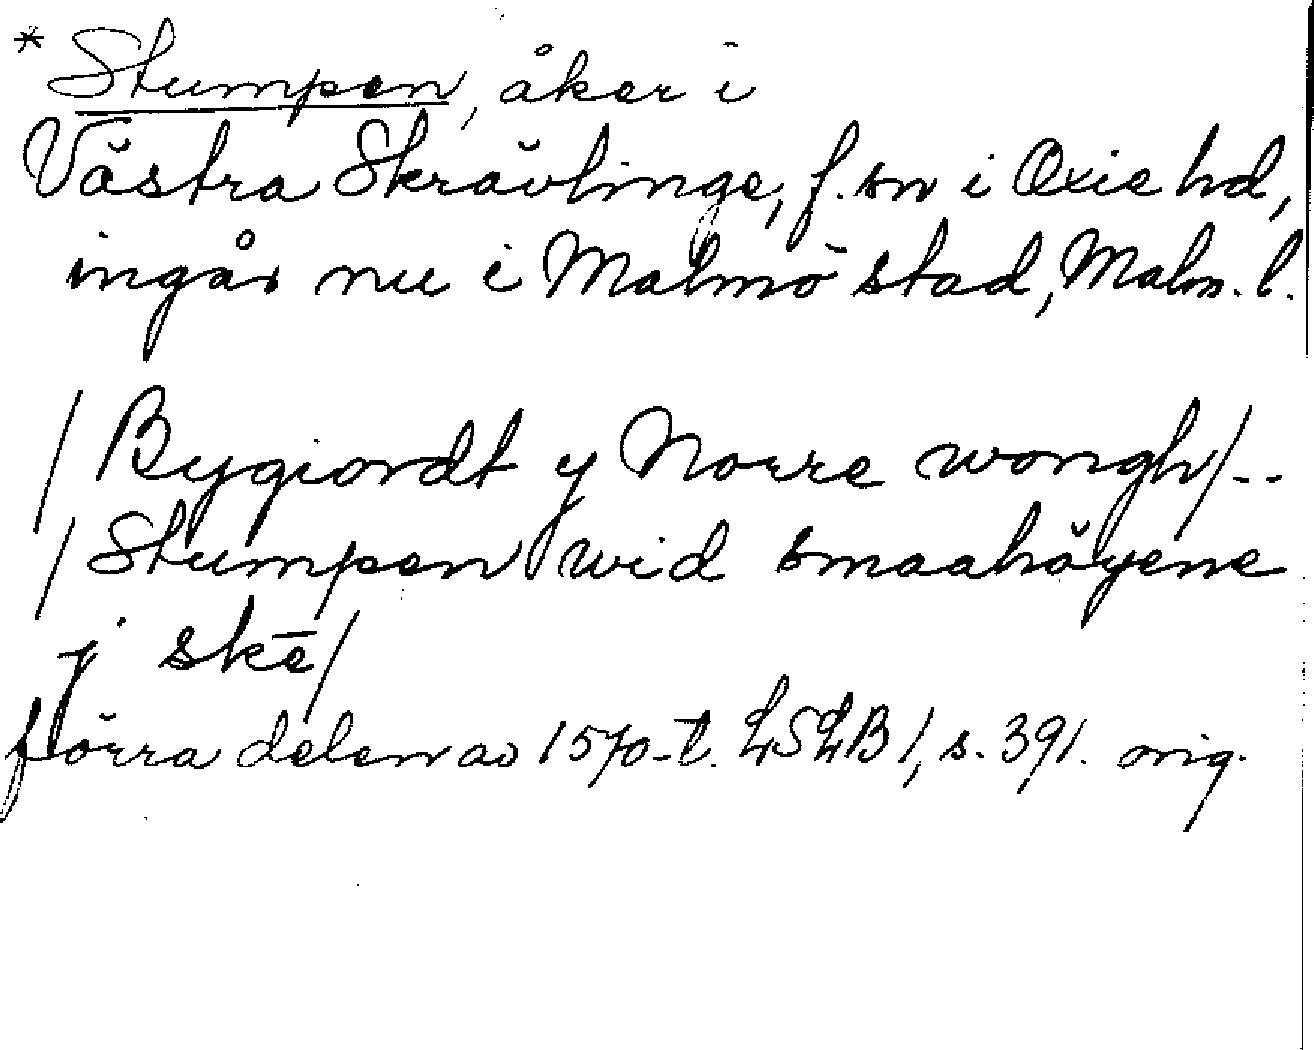 * Stumpen, åker i
Västra Skrävlinge, f. sn i Oxie hd,
ingår nu i Malmö stad, Malm. l.
/ Bygiordt y Norre wongh/--
/ Stumpen wid smaahöyene
j skē/
förra delen av 1570-t. LSLB 1, s. 391. orig.